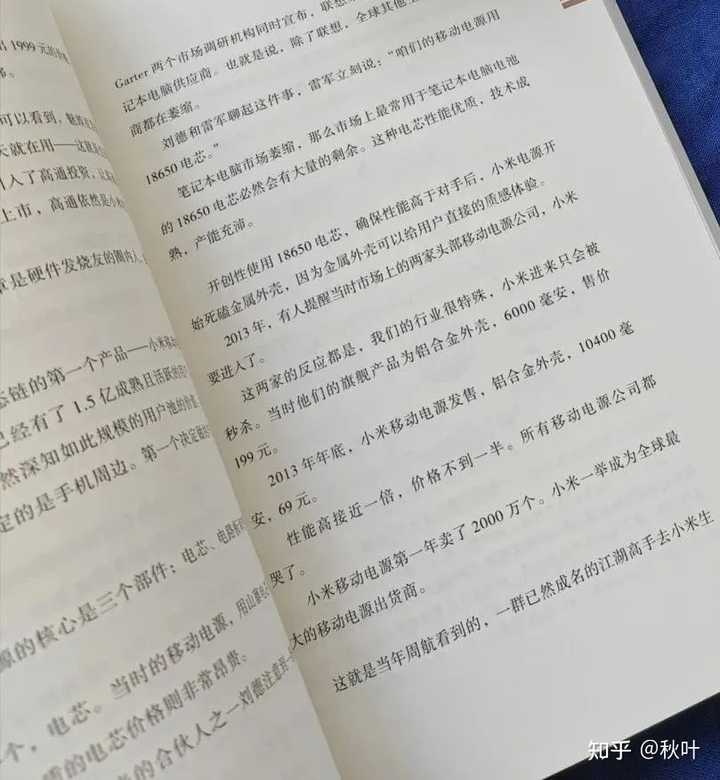 1999元的
可以看到，魅
天就在用——这
入了高通投资，
上市，高通依然是小米
是硬件发烧友的圈内人
态链的第一个产品——小米
已经有了1.5亿成熟且活跃的
然深知如此规模的用户池的价值
定的是手机周边。第一个决定
源的核心是三个部件：电芯、电路
个，电芯。当时的移动电源，用山寨
质的电芯价格则非常昂贵。
的合伙人之一刘德注意到
Garter两个市场调研机构同时宣布，联想
记本电脑供应商。也就是说，除了联想，全球其他
商都在萎缩。
刘德和雷军聊起这件事，雷军立刻说：“咱们的移动电源用
18650电芯。”
笔记本电脑市场萎缩，那么市场上最常用于笔记本电脑电池
的18650电芯必然会有大量的剩余。这种电芯性能优质，技术成
熟，产能充沛。
开创性使用18650电芯，确保性能高于对手后，小米电源开
始死磕金属外壳，因为金属外壳可以给用户直接的质感体验。
2013年，有人提醒当时市场上的两家头部移动电源公司，小米
要进入了。
这两家的反应都是，我们的行业很特殊，小米进来只会被
秒杀。当时他们的旗舰产品为铝合金外壳，6000毫安，售价
199元。
2013年年底，小米移动电源发售，铝合金外壳，10400毫
安，69元。
性能高接近一倍，价格不到一半。所有移动电源公司都
哭了。
小米移动电源第一年卖了2000万个。小米一举成为全球最
大的移动电源出货商。
这就是当年周航看到的，一群已然成名的江湖高手去小米生
知乎 @秋叶